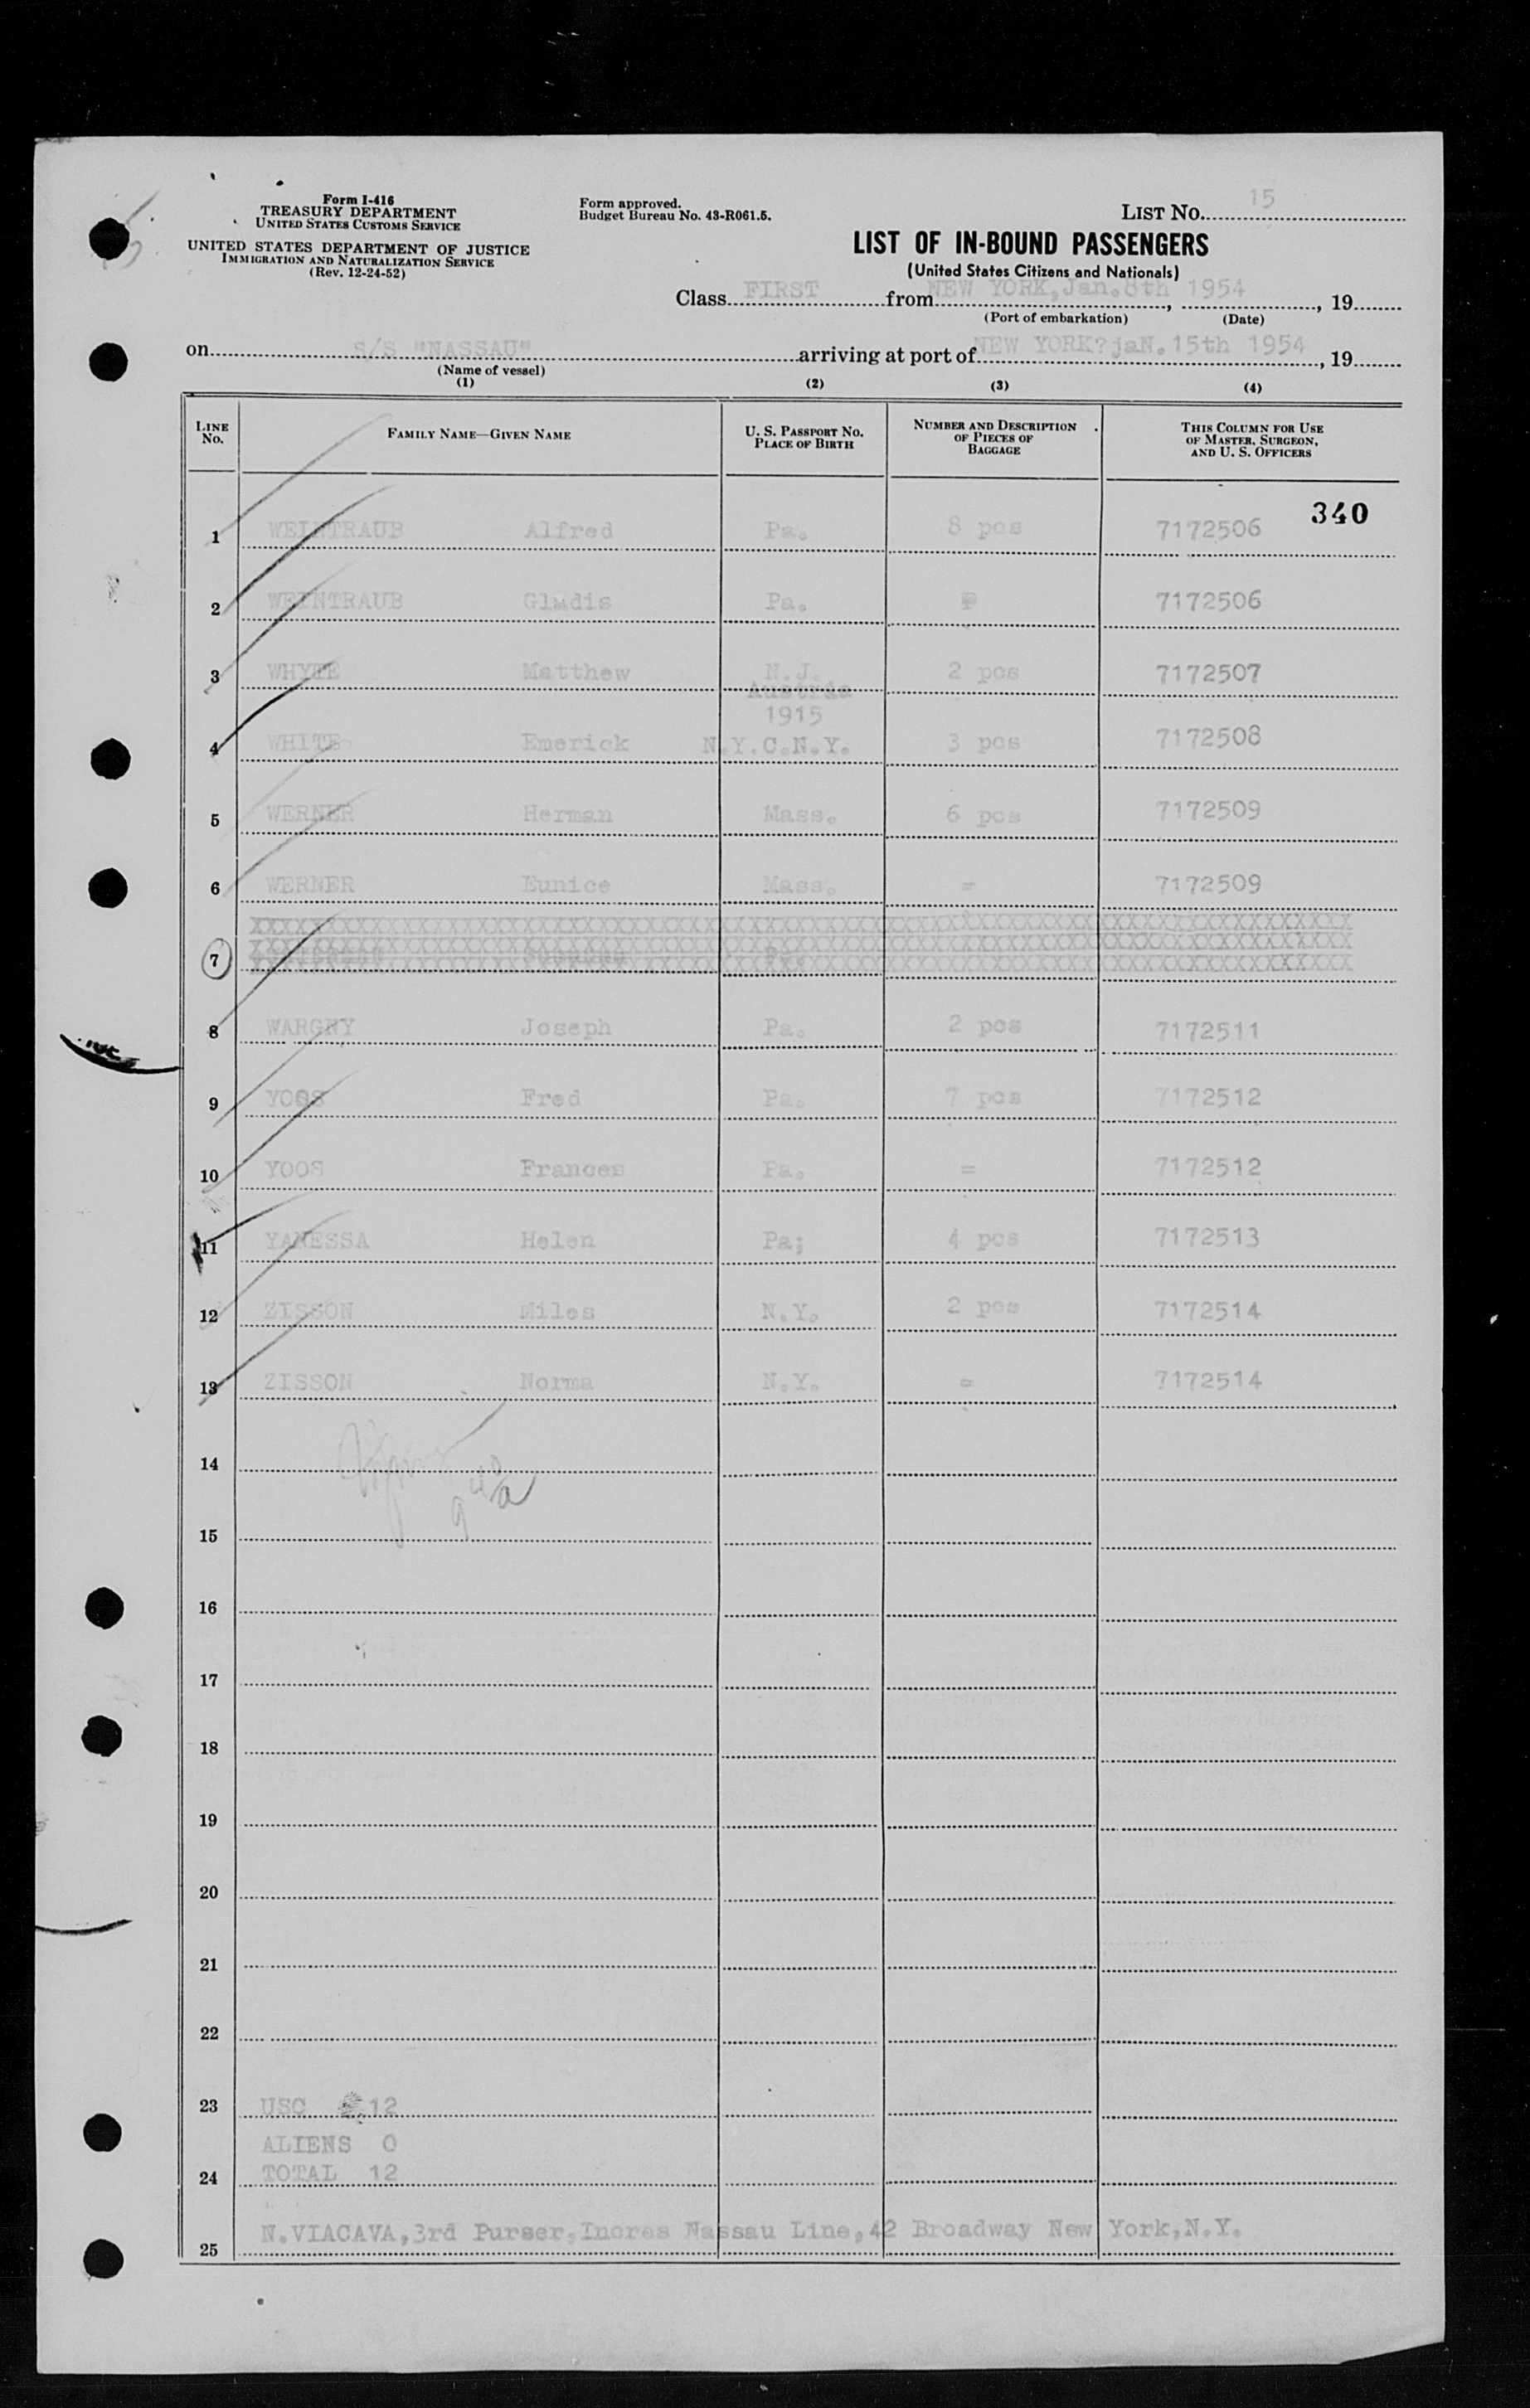 Form I-416
TREASURY DEPARTMENT
UNITED STATES CUSTOMS SERVICE
UNITED STATES DEPARTMENT OF JUSTICE
IMMIGRATION AND NATURALIZATION SERVICE
(Rev. 12-24-52)
Form approved.
Budget Bureau No. 43-R061.5.
LIST NO. 15
LIST OF IN-BOUND PASSENGERS
(United States Citizens and Nationals)
Class FIRST from NEW YORK, Jan. 8th 1954, 19
(Port of embarkation) (Date)
on S/S "NASSAU" arriving at port of NEW YORK?jaN.15th 1954, 19
(Name of vessel)
(1) (2) (3) (4)
LINE NO. FAMILY NAME—GIVEN NAME U. S. PASSPORT NO. PLACE OF BIRTH NUMBER AND DESCRIPTION OF PIECES OF BAGGAGE THIS COLUMN FOR USE OF MASTER, SURGEON, AND U. S. OFFICERS
340
1 WEINTRAUB Alfred Pa. 8 pcs 7172506
2 WEINTRAUB Gladis Pa. 7172506
3 WHYTE Matthew N.J. 2 pcs 7172507
Austria
1915
4 WHITE Emerick N.Y.C.N.Y. 3 pcs 7172508
5 WERNER Herman Mass. 6 pcs 7172509
6 WERNER Eunice Mass. = 7172509
7
8 WARGNY Joseph Pa. 2 pcs 7172511
9 YOOS Fred Pa. 7 pcs 7172512
10 YOOS Frances Pa. = 7172512
11 YANESSA Helen Pa; 4 pcs 7172513
12 ZISSON Miles N.Y. 2 pcs 7172514
13 ZISSON Norma N.Y. = 7172514
14
15
16
17
18
19
20
21
22
23 USC 12
ALIENS 0
24 TOTAL 12
N.VIACAVA,3rd Purser,Incres Nassau Line,42 Broadway New York,N.Y.
25